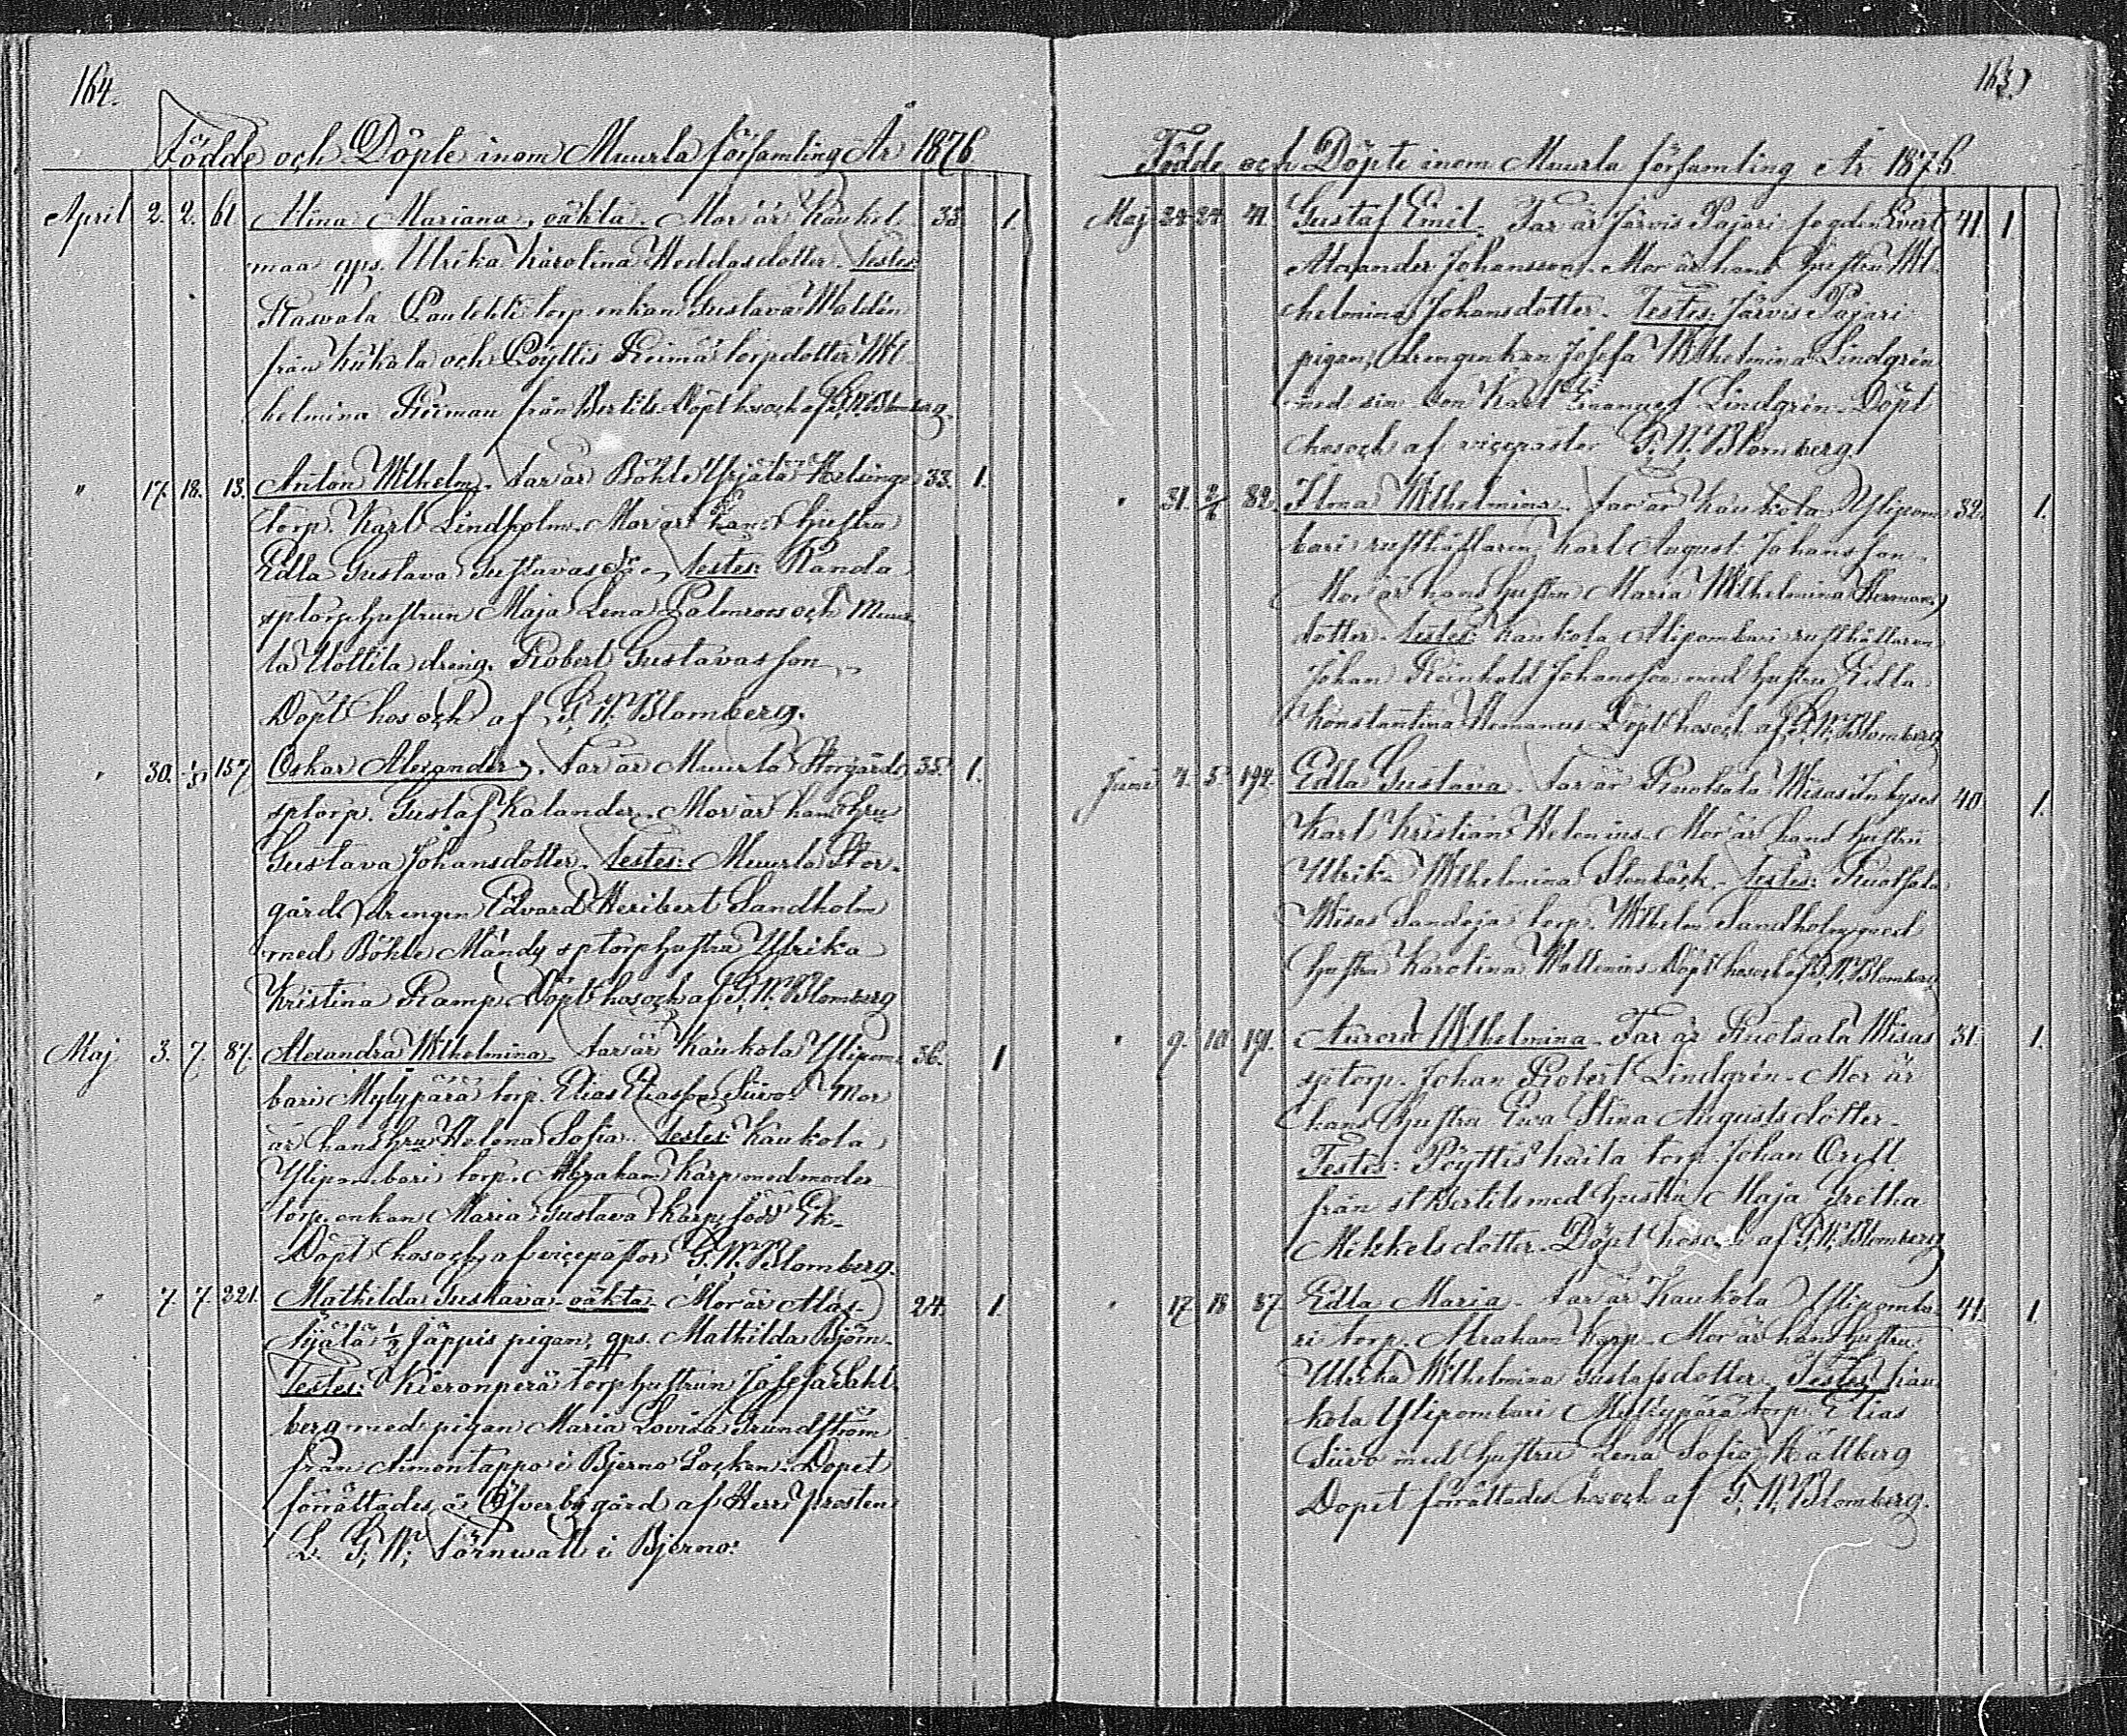 164.
Födde och Döpte inom Muurla församling År 1876
April 2. 2. 61 Alina Mariana, oäkta. Mor är Kaukel- 33. 1.
maa qps. Ulrika Karolina Heddasdotter. Testes:
torp enkan Gustava Waldén
från Kükala och Pöyttis torpdotter Wil-
helmina från Bertils. Döpt hos och af G. W. Blomberg.
" 17. 18. 13. Anton Wilhelm. Far är Böhle Yrjälä Helsinge 33. 1.
torp. Karl Lindholm. Mor är hans hustru
Edla Gustava Testes: Randa
sptorphustrun Maja Lena Palmroos och Muur-
la Uottila dreng. Robert Gustavasson
Döpt hos och af G. W. Blomberg.
" 30. 1/5 157 Oskar Alexander. Far är Muurla Storgårds 35. 1.
sptorp. Gustaf Kalander. Mor är hans hru
Gustava Johansdotter. Testes: Muurla Stor-
gårds drengen Edvard Heribert Sandholm
med Böhle Mändy sptorphustru Ulrika
Kristina Ramp. Döpt hos och af G. W. Blomberg
Maj 3. 7. 87. Alexandra Wilhelmina. Far är Kaukola Ylipom- 36. 1
bari Myllypärä torp. Elias Eliasson Siivo. Mor
är hans hru Helena Sofia. Testes: Kaukola
Ylipombari torp. Abraham Karp med moder
torp. enkan Maria Gustava Karp, född Ek.
Döpt hos och af vicepastor G. W. Blomberg.
" 7. 7. 221. Mathilda Gustava, oäkta. Mor är Alas- 24. 1.
kylä 1/2 Jäppis pigan, qps. Mathilda Björn.
Testes: Kieronperä torphustrun Josefa Sahl-
berg med pigan Maria Lovisa Grundström
från Aimontappo i Bjerno Socken. Dopet
förrättades å Öfverbygård af Herr Prosten
L. G. W. Törnwall i Bjerno.
165.
Födde och Döpte inom Muurla församling År 1876.
Maj 24. 24. 41. Gustaf Emil. Far är Järvis Pajari fogden Evert 41. 1.
Alexander Johansson. Mor är hans hustru Wil-
helmina Johansdotter. Testes: Järvis Pajari
pigan, drengenkan Josefa Wilhelmina Lindgrén
med sin son Karl Emanuel Lindgrén. Döpt
hos och af vicepastor G. W. Blomberg
" 31. 2/6 82. Ilma Wilhelmina. Far är Kaukola Ylipom- 32. 1.
bari rusthållaren Karl August Johansson.
Mor är hans hustru Maria Wilhelmina Hermans-
dotter. Testes: Kaukola Alipombari rusthållaren
Johan Reinhold Johansson med hustru Edla
Konstantina Döpt hos och af G. W. Blomberg
Juni 4. 5. 194. Edla Gustava. Far är Ruotsala Wisas Inhyses 40 1.
Karl Kristian Helenius. Mor är hans hustru
Ulrika Wilhelmina Stenbäck. Testes: Ruotsala
Wisas Sandoja torp. Wilhelm Sandholm med
hustru Karolina Wallenius. Döpt hos och af G. W. Blomberg
" 9. 10. 191. Aurora Wilhelmina. Far är Ruotsala Wisas 31. 1.
sptorp. Johan Robert Lindgrén. Mor är
hans hustru Eva Stina Augustsdotter.
Testes: Pöyttis Kaila torp. Johan Orell
från St Bertils med hustru Maja Gretha
Mikkelsdotter. Döpt hos och af G. W. Blomberg
" 17 18 87 Edla Maria. Far är Kaukola Ylipomba- 41. 1.
ri torp. Abraham Karp. Mor är hans hustru
Ulrika Wilhelmina Gustafsdotter. Testes: Kau-
kola Ylipombari Myllypärä torp. Elias
Siivo med hustru Lena Sofia Källberg
Dopet förrättades hos och af G. W. Blomberg.